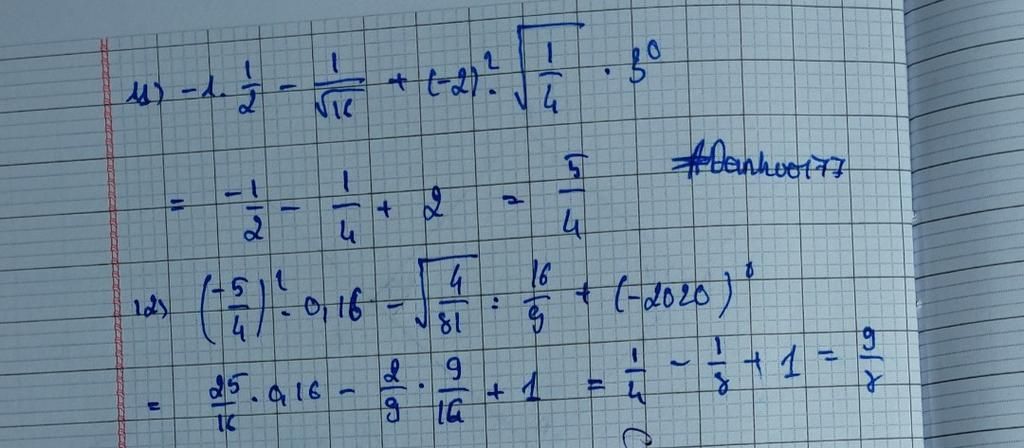 11) -1. 1/2 - 1/√16 + (-2)². √(1/4) . 3⁰
= -1/2 - 1/4 + 2 = 5/4
#Danhoo177
12) (-5/4)². 0,16 - √(4/81) : 16/9 + (-2020)⁰
= 25/16 . 0,16 - 2/9 . 9/16 + 1 = 1/4 - 1/8 + 1 = 9/8